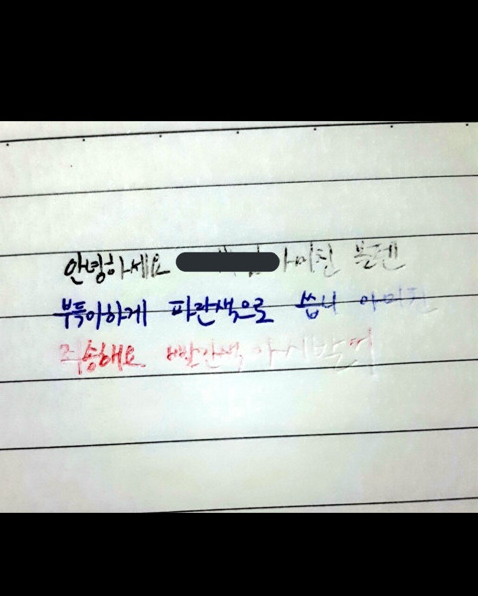 안녕하세요 아미친 볼펜
부득이하게 파란색으로 씁니 아미친
죄송해요 빨간색 아시박